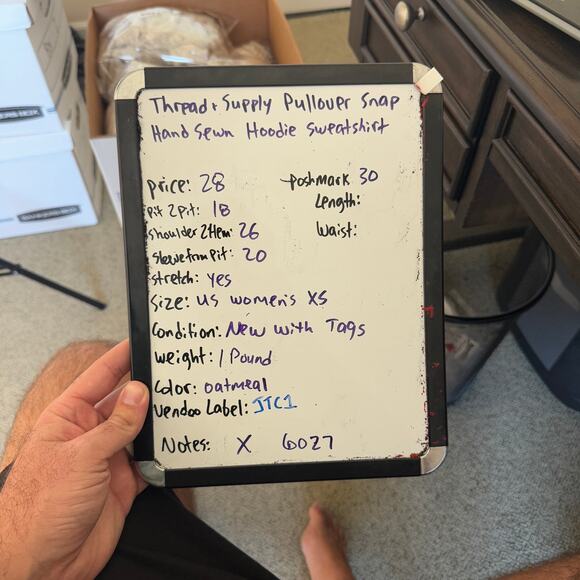 Thread + Supply Pullover Snap
Hand Sewn Hoodie Sweatshirt
price: 28
poshmark 30
Pit 2 Pit: 18
Length:
Shoulder 2 Hem: 26
Waist:
Sleeve from Pit: 20
Stretch: yes
Size: US women's XS
Condition: New with Tags
Weight: 1 Pound
Color: oatmeal
Vendoo Label: JTC1
Notes: X 6027